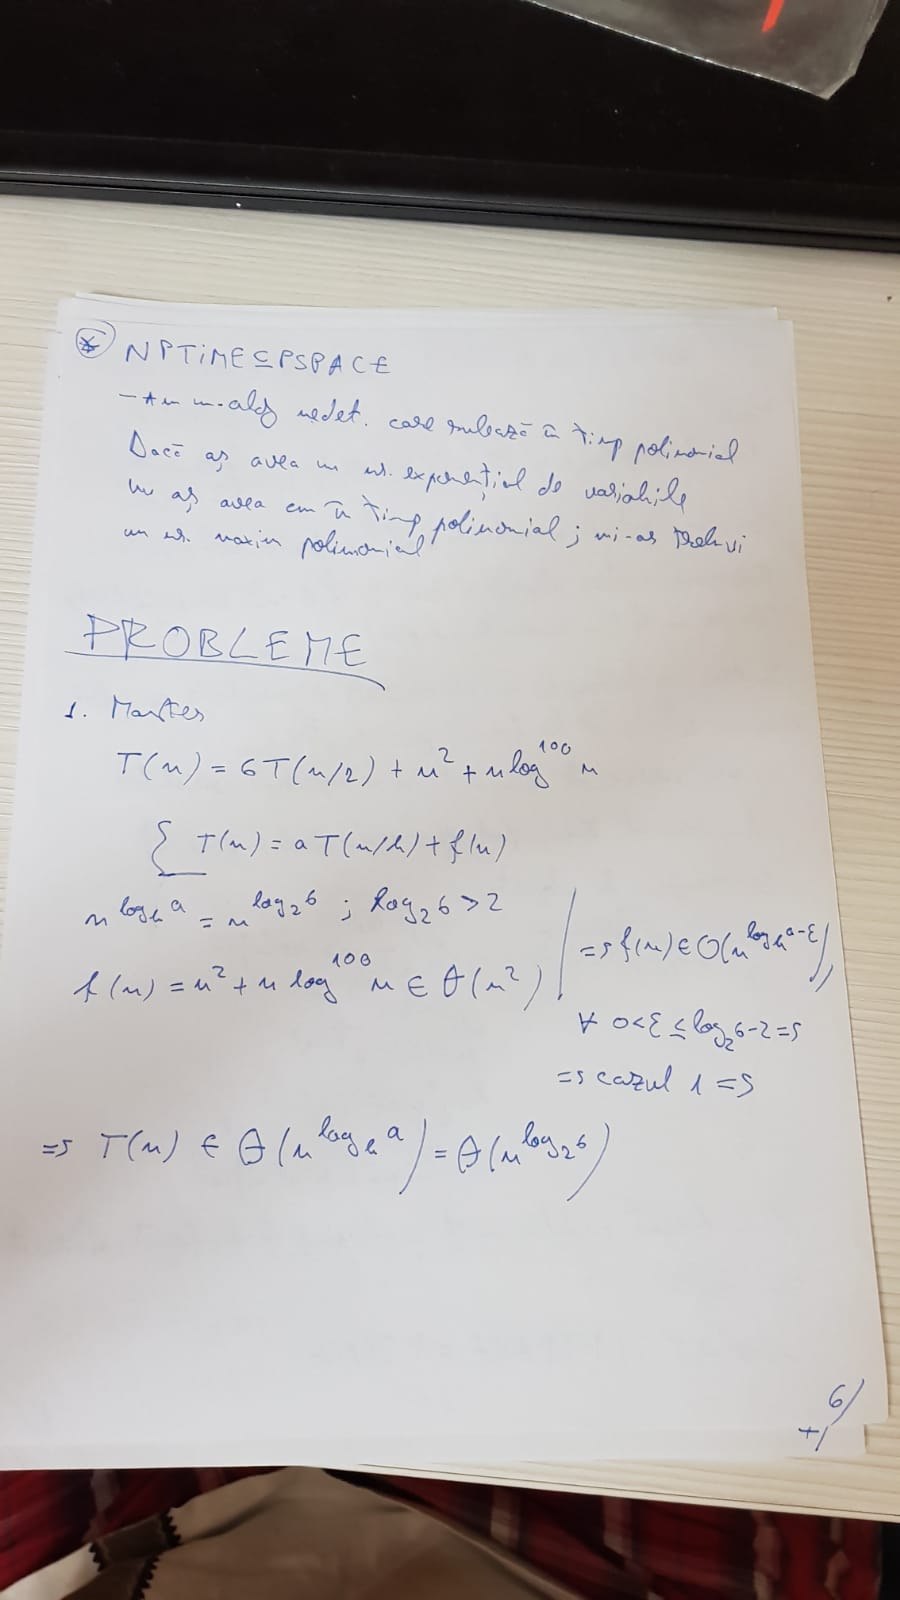 * NPTIME ⊆ PSPACE
- Am un alg nedet. care rulează în timp polinomial
Dacă aș avea un nr. exponențial de variabile
nu aș avea cum în timp polinomial; mi-aș trebui
un nr. maxim polinomial
PROBLEME
1. Master
T(n) = 6T(n/2) + n² + n log¹⁰⁰ n
{ T(n) = aT(n/b) + f(n)
n^(log_b a) = n^(log₂6) ; log₂6 > 2
f(n) = n² + n log¹⁰⁰ n ∈ θ(n²)
=> f(n) ∈ O(n^(log_b a-ε)),
∀ 0<ε≤log₂6-2 =>
=> cazul 1 =>
=> T(n) ∈ θ(n^(log_b a)) = θ(n^(log₂6))
6/
+1